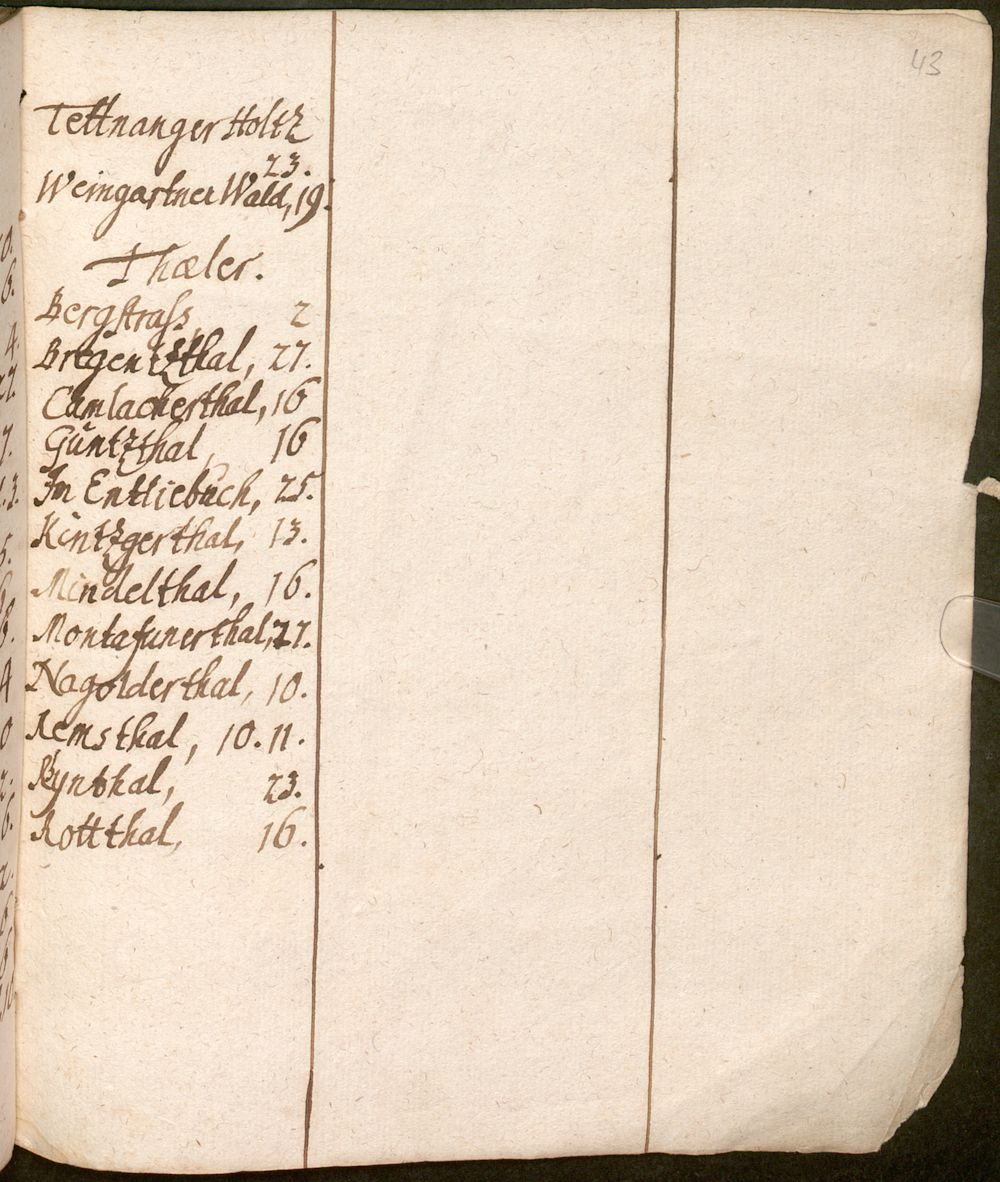 43
Tettnanger Holtz
23.
Weingartner Wald, 19.
Thæler.
Bergstrass, 2
Bregentzthal, 27.
Camlacherthal, 16
Güntzthal, 16
Im Entliebuch, 25.
Kintzgerthal, 13.
Mindelthal, 16.
Montafunerthal, 27.
Nagolderthal, 10.
Remsthal, 10. 11.
Rynthal, 23.
Rottthal, 16.